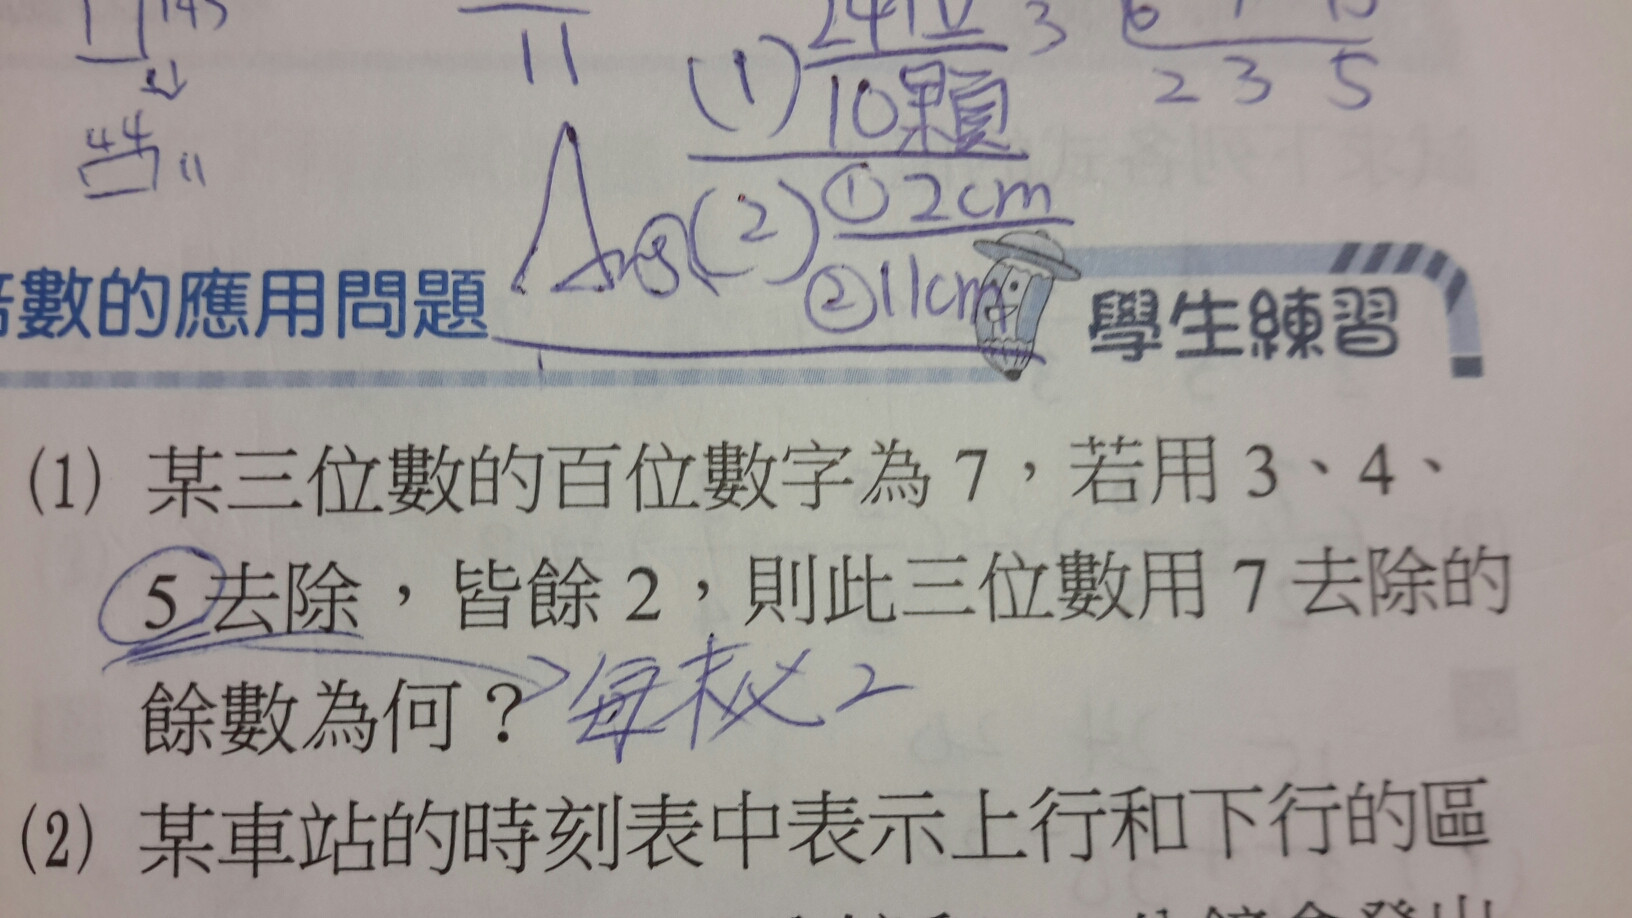 145
44
11
11
(1) 24位
10顆
3
2 3 5
Ans (2) ① 2cm
② 11cm
數的應用問題
學生練習
(1) 某三位數的百位數字為 7，若用 3、4、
5 去除，皆餘 2，則此三位數用 7 去除的
餘數為何？
2
(2) 某車站的時刻表中表示上行和下行的區